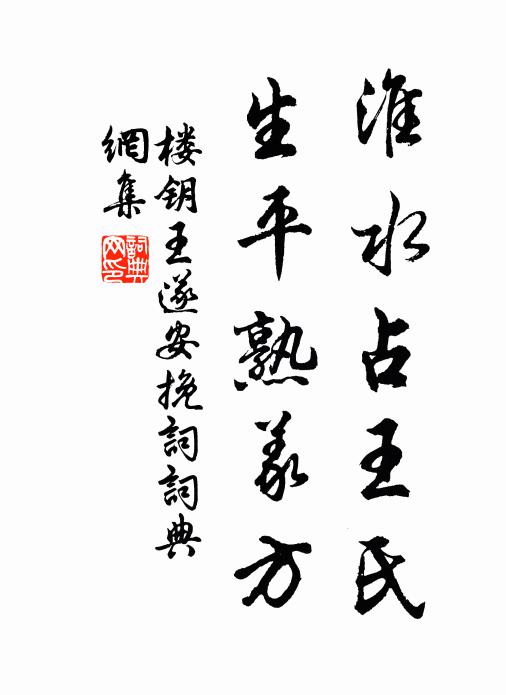 淮水占王氏
生平熟义方
楼钥王遂安挽詞詞典
網集
詞典网印